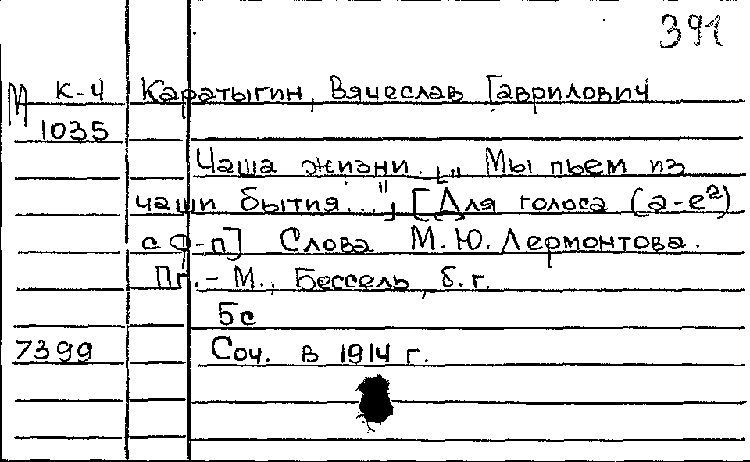 391
М К-4 Каратыгин, Вячеслав Гаврилович
1035
Чаша жизни. [„Мы пьем из
чаши бытия..."] [Для голоса (a-e²)
с ф-п] Слова М.Ю. Лермонтова.
Пг.-М., Бессель, б.г.
5с
7399 Соч. в 1914 г.